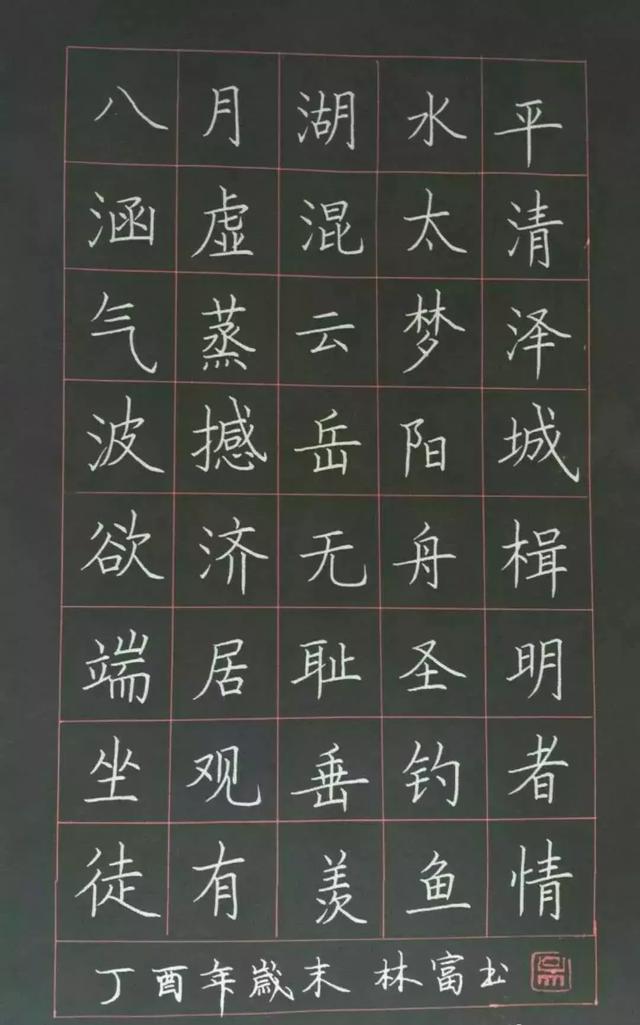 八月湖水平
涵虚混太清
气蒸云梦泽
波撼岳阳城
欲济无舟楫
端居耻圣明
坐观垂钓者
徒有羡鱼情
丁酉年歲末 林富书